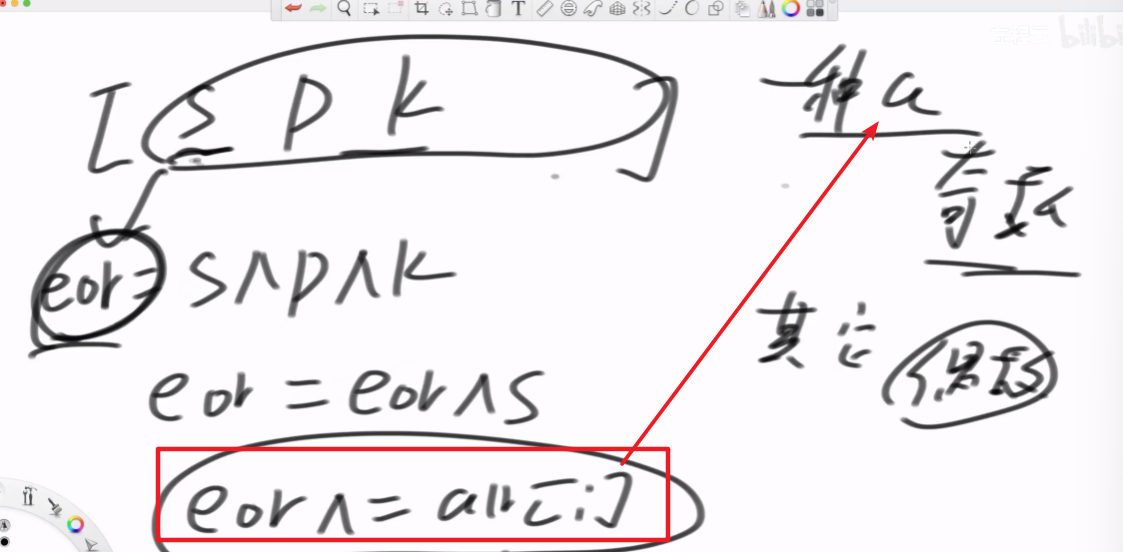 [ s p k ]
eor = s ∧ p ∧ k
eor = eor ∧ s
eor ∧= arr[i]
一种 a
奇数
其它 偶数
bilibi